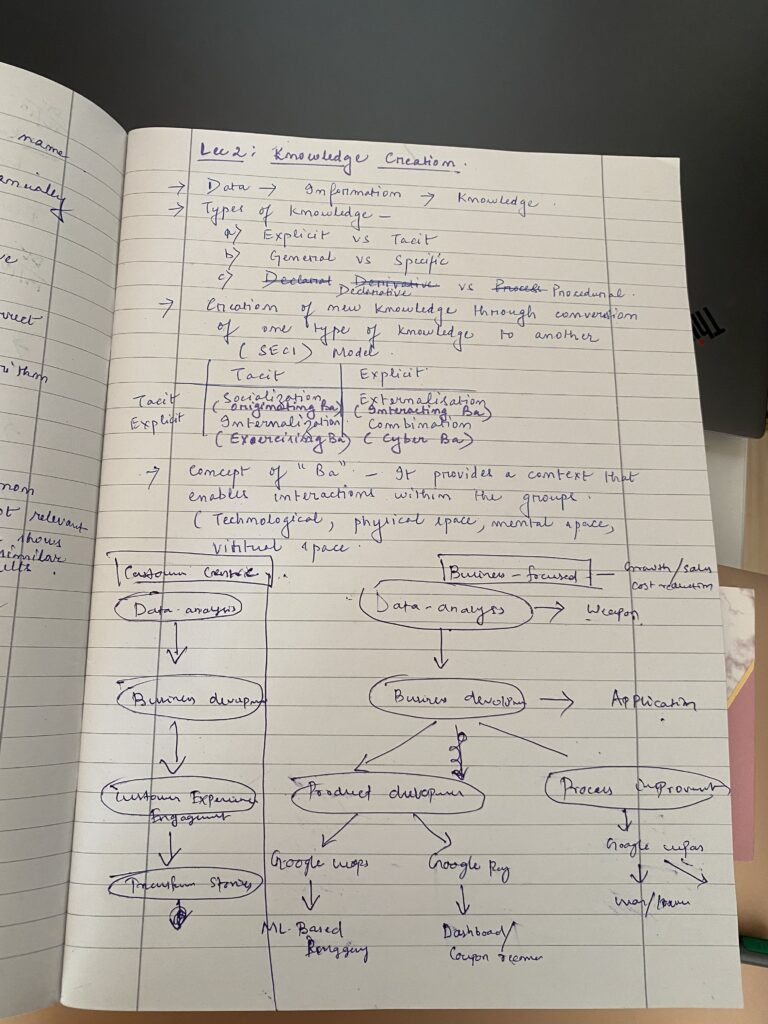 name
Lec 2: Knowledge Creation.
→ Data → Information → Knowledge.
→ Types of Knowledge –
a) Explicit vs Tacit
b) General vs Specific
c) Declarat Derivative vs Process Procedural.
Declarative
→ Creation of new knowledge through conversion
of one type of knowledge to another
(SECI) Model.
Tacit Explicit
Tacit Socialization Externalisation
(Originating Ba) (Interacting Ba)
Explicit Internalization Combination
(Exercising Ba) (Cyber Ba)
→ Concept of "Ba" – It provides a context that
enables interactions within the groups.
(Technological, physical space, mental space,
space.
relevant
shows
similar
Business-focused – Growth/sales
cost reduction
Data-analysis
Data-analysis → Weapon
Business
Business → Application
Customer
Product
Process
Google maps
Google Pay
Google
Stories
ML-Based
Dashboard/
Coupon